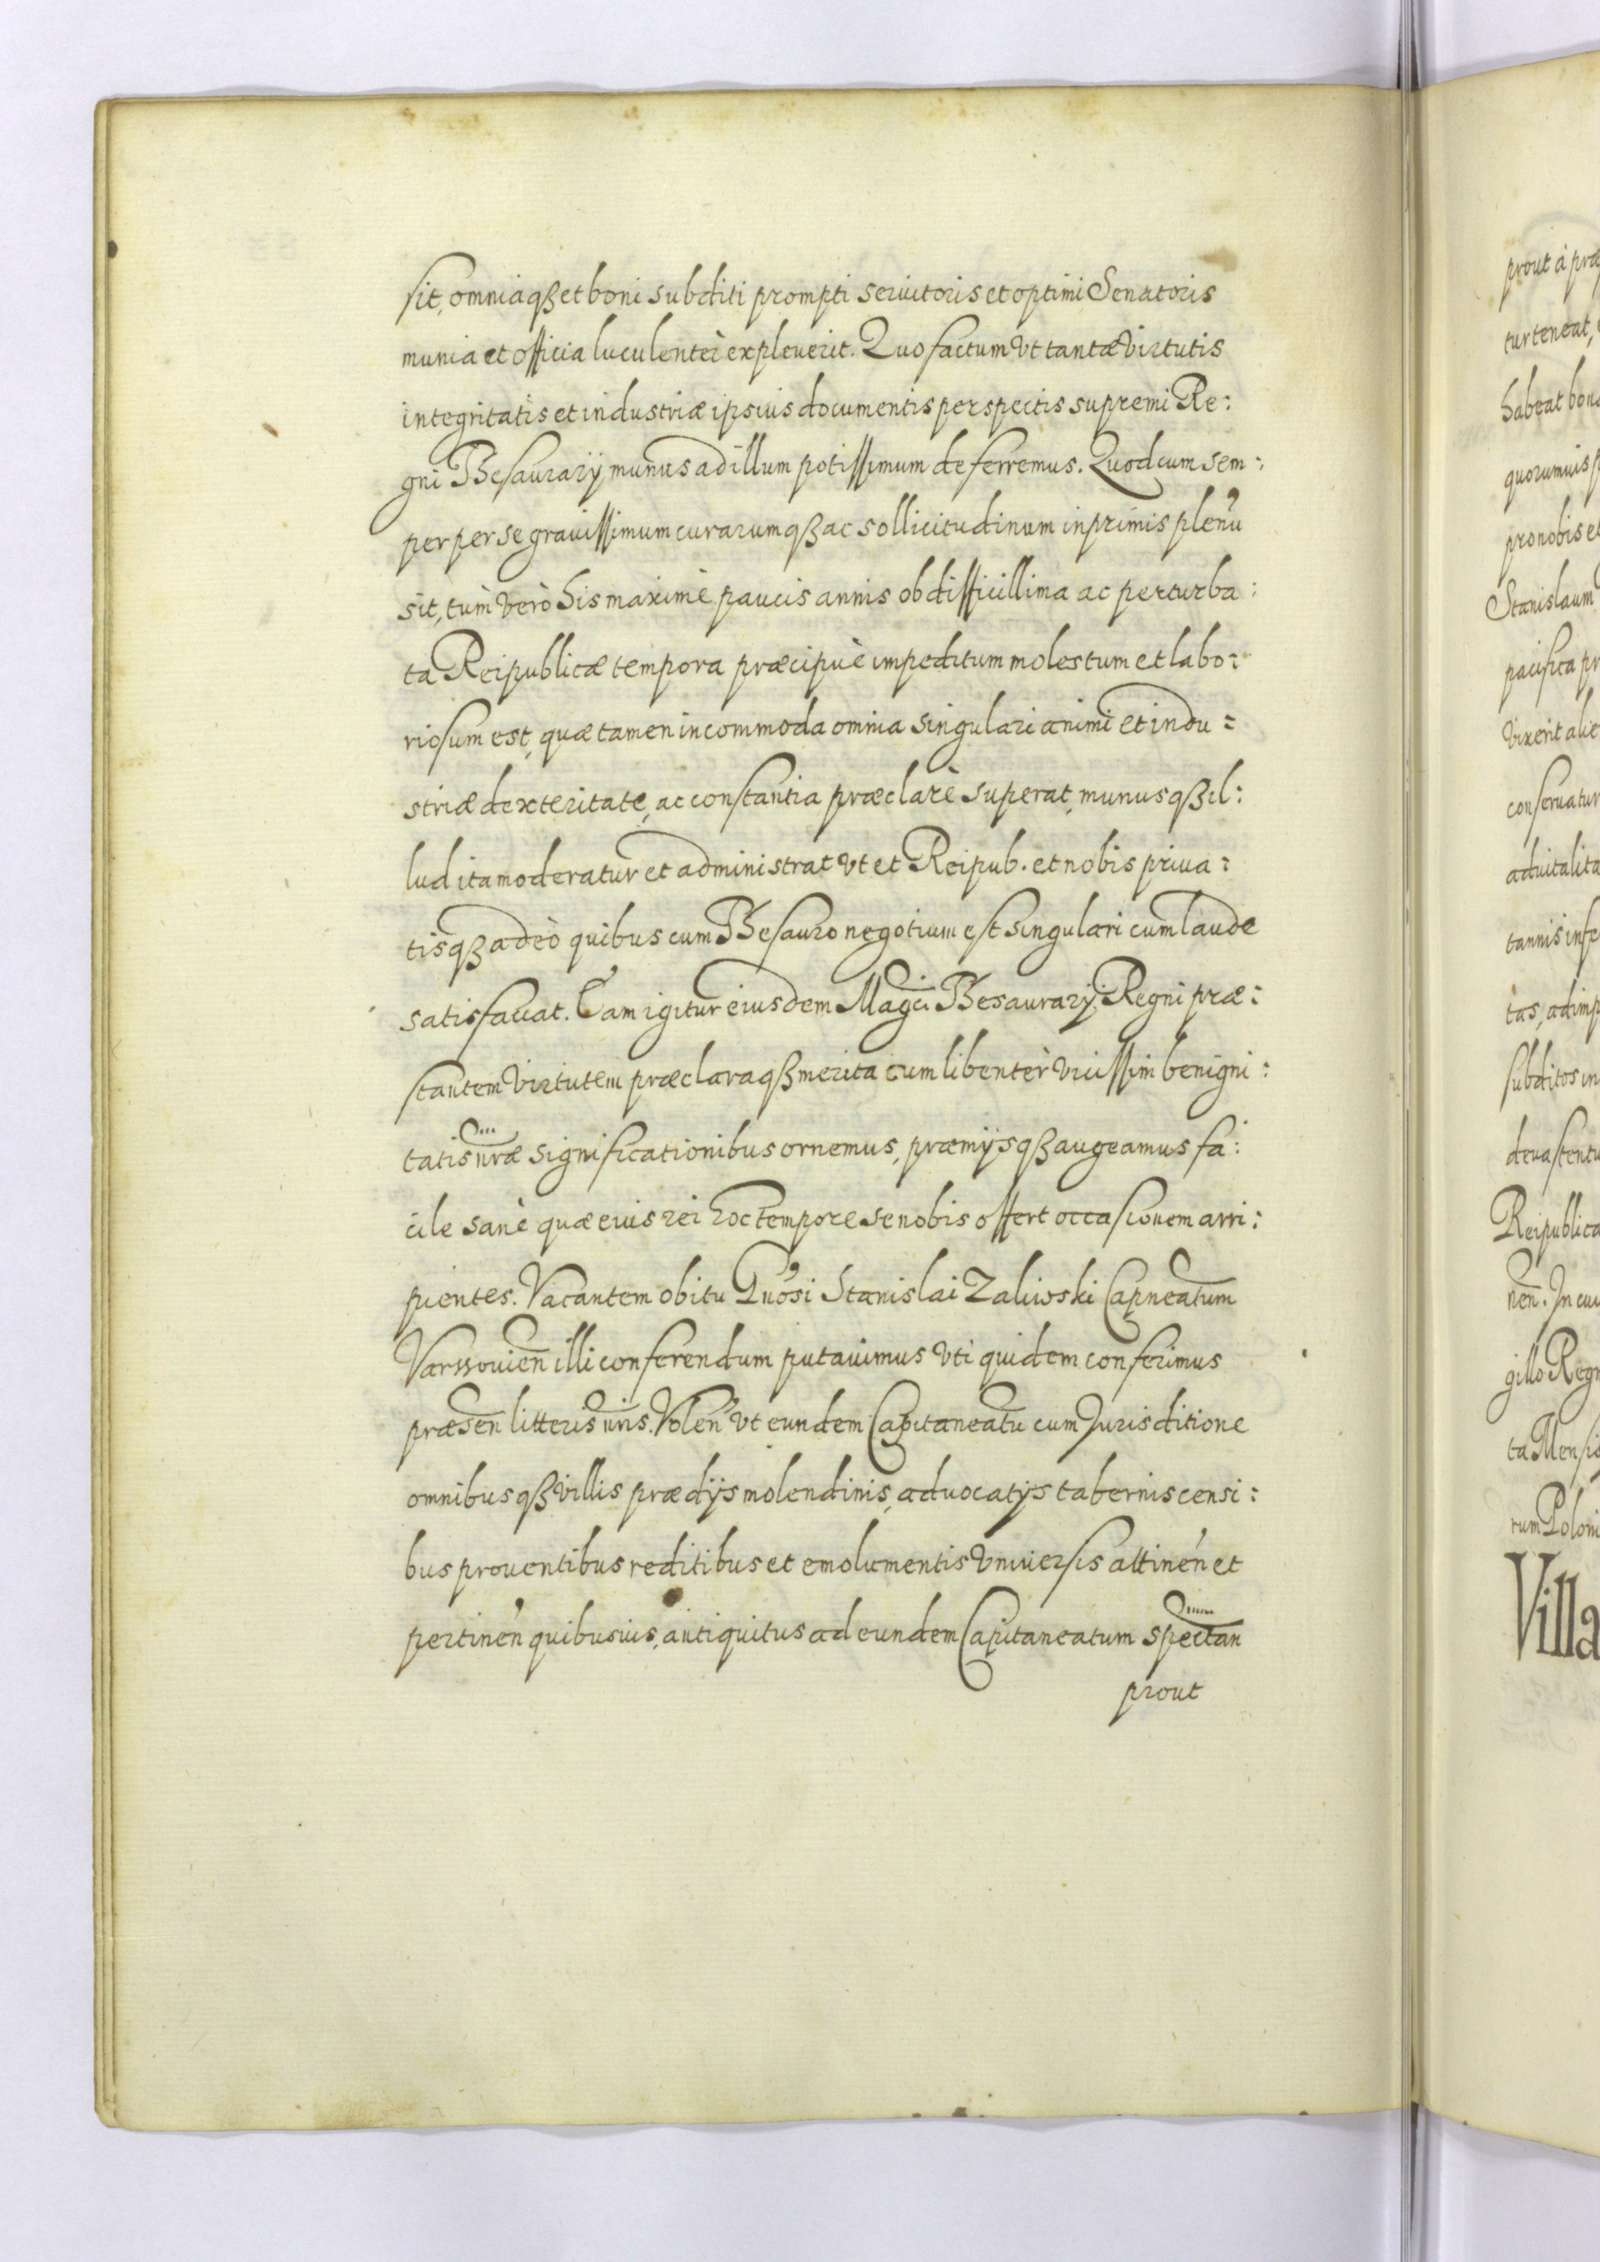 sit, omniaqȝ et boni subditi prompti seruitoris et optimi Senatoris
munia et officia luculentèr expleuerit. Quo factum vt tantæ virtutis
integritatis et industriæ ipsius documentis perspectis supremi Re:
gni Thesaurarij munus ad illum potissimum deferremus. Quod cum sem:
per per se grauissimum curarumqȝ ac sollicitudinum inprimis plenũ
sit, tum verò his maximè paucis annis ob difficillima ac perturba:
ta Reipublicæ tempora præcipuè impeditum molestum et labo:
riosum est, quæ tamen incommoda omnia singulari animi et indu:
striæ dexteritate, ac constantia præclarè superat, munusqȝ il:
lud ita moderatur et administrat vt et Reipub. et nobis priua:
tisqȝ adeò quibus cum Thesauro negotium est singulari cum laude
satisfaciat. Eam igitur eiusdem Magci Thesaurarij Regni præ:
stantem virtutem præclaraqȝ merita cum libentèr vicissim benigni:
tatis nræ significationibus ornemus, præmijsqȝ augeamus fa:
cile sanè quæ eius rei hoc tempore se nobis offert occasionem arri:
pientes. Vacantem obitu Gnosi Stanislai Zaliwski Capneatum
Varssouien illi conferendum putauimus vti quidem conferimus
præsen litteris nris. Volen vt eundem Capitaneatu cum Jurisditione
omnibusqȝ villis prædijs molendinis, aduocatijs tabernis censi:
bus prouentibus reditibus et emolumentis vniuersis attinen et
pertinen quibusuis, antiquitus ad eundem Capitaneatum spectan
prout
prout à præ
tur teneat,
habeat bona
quorumuis p
pro nobis et
Stanislaum
pacifica
vixerit
conseruatur
aduitalita
tannis infe
tas, adimp
subditos in
deuastentu
Reipublica
nen. In cuiu
gillo Regn
ta Mensis
rum Poloni
Villa